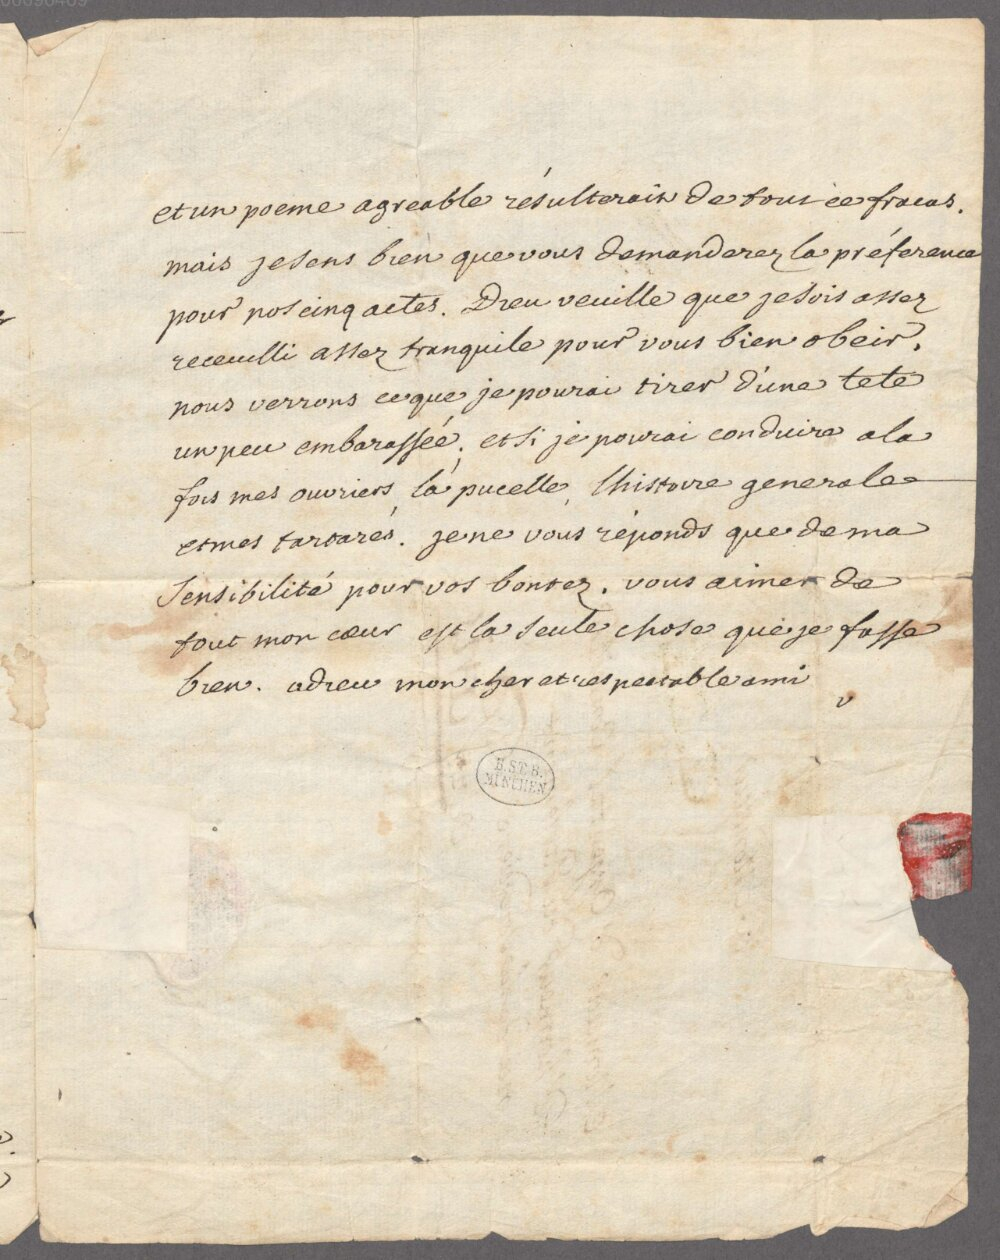 et un poeme agreable résulterait de tout ce fracas.
mais je sens bien que vous demanderez la préference
pour nos cinq actes. Dieu veuille que je sois assez
receuilli assez tranquile pour vous bien obeir.
nous verrons ce que je pourai tirer d'une tete
un peu embarassée, et si je pourai conduire a la
fois mes ouvriers, la pucelle, l'histoire generale
et mes tartares. je ne vous réponds que de ma
sensibilité pour vos bontez. vous aimer de
tout mon cœur est la seule chose que je fasse
bien. adieu mon cher et respectable ami
v
B.ST.B.
MÜNCHEN